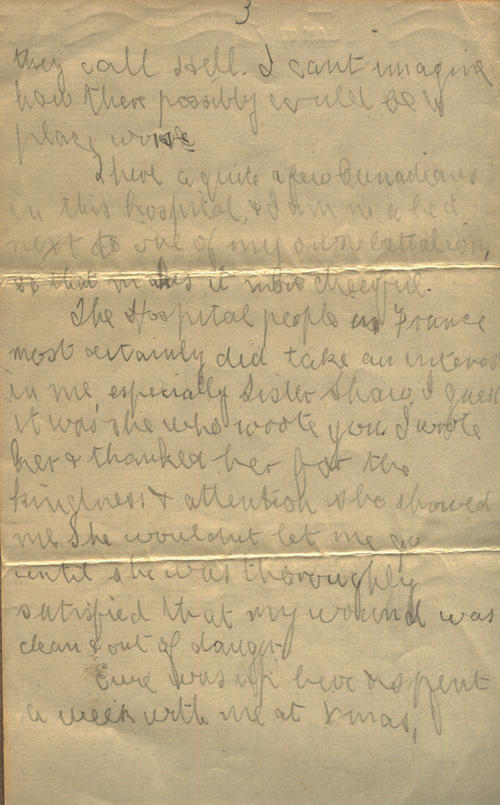 3
they call Hell. I cant imagine
how there possibly could be a
place worse
There a quite a few Canadians
in this hospital, & I am in a bed
next to one of my own battalion,
so that makes it more cheerful.
The Hospital people in France
most certainly did take an interest
in me especially Sister Shaw. I guess
it was she who wrote you. I wrote
her & thanked her for the
kingness & attention she showed
me. She wouldnt let me go
until she was thoroughly
satisfied that my wound was
clean & out of danger
was up here & spent
a week with me at Xmas,